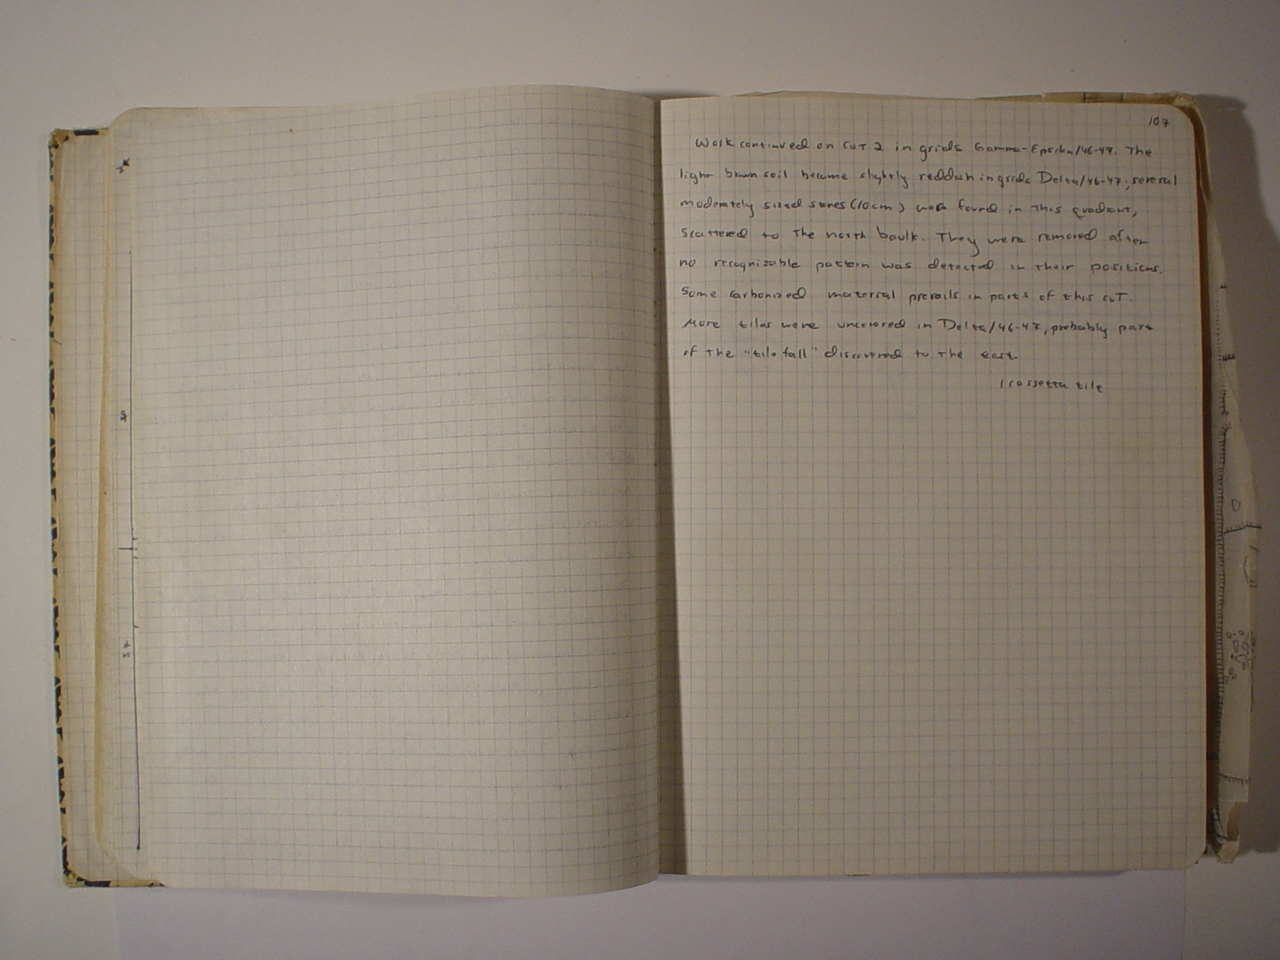 107
Work continued on cut 2 in grids Gamma-Epsilon/46-47. The
light brown soil become slightly reddish in grids Delta/46-47; several
moderately sized stones (10cm) were found in this quadrant,
scattered to the north baulk. They were removed after
no recognizable pattern was detected in their positions.
Some carbonized material prevails in parts of this cut.
More tiles were uncovered in Delta/46-47, probably part
of the "tile fall" discovered to the east
1 rossetta tile